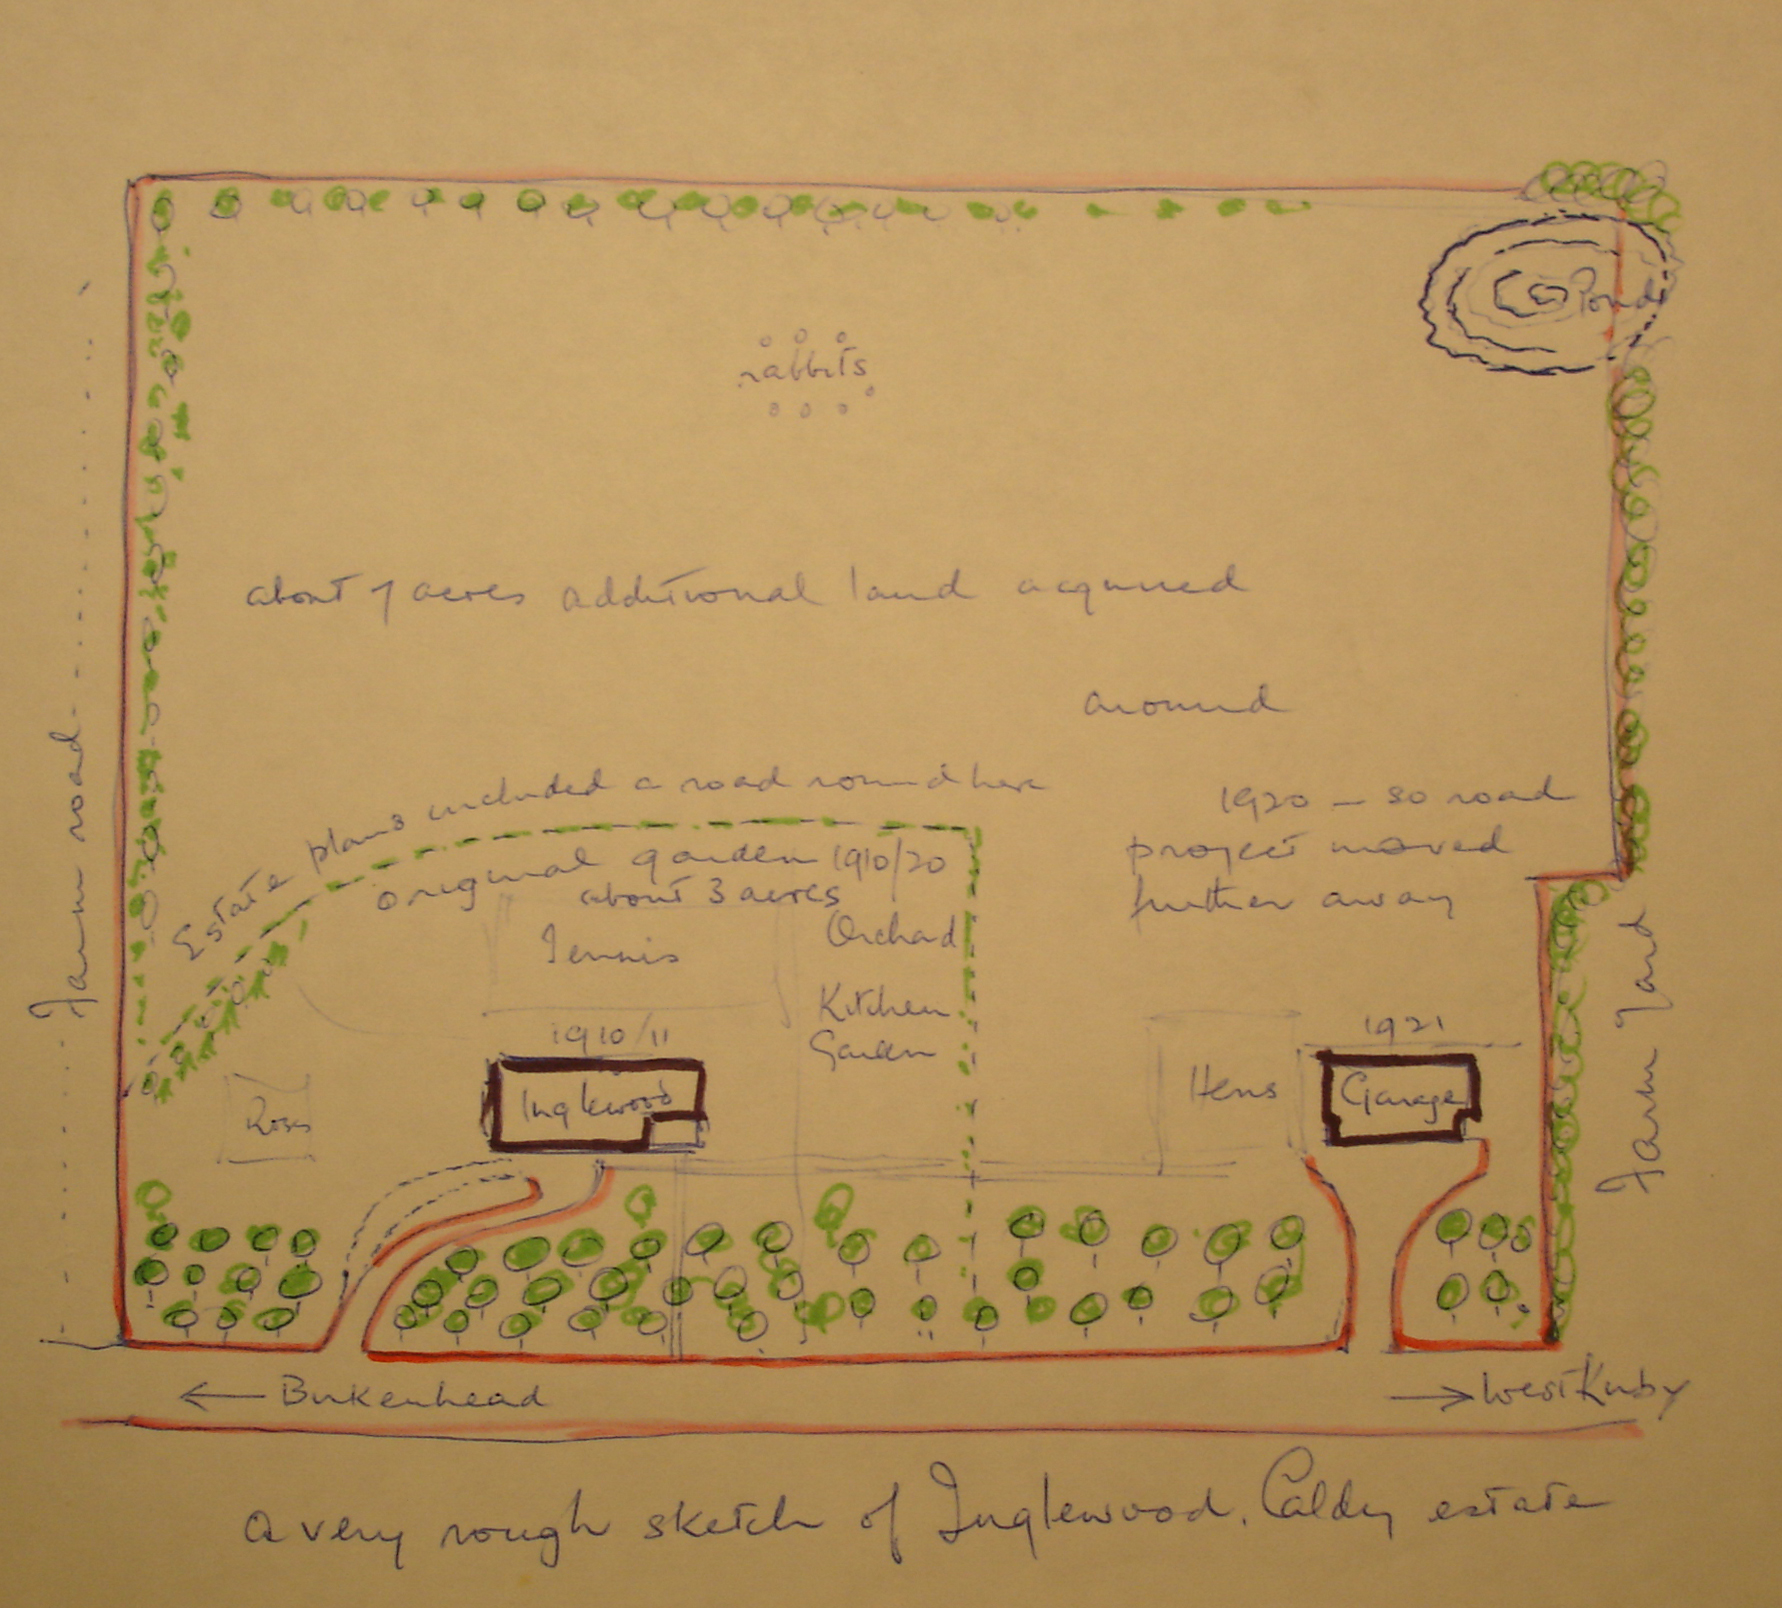 Pond
rabbits
about 7 acres additional land acquired
around
Estate plans included a road round here
1920 – so road
project moved
further away
original garden 1910/20
about 3 acres
Orchad
Tennis
Kitchen
Garden
1910/11
Inglewood
Roses
Hens
1921
Garage
Farm road
Farm Yard
← Birkenhead
→ West Kirby
a very rough sketch of Inglewood, Caldy estate